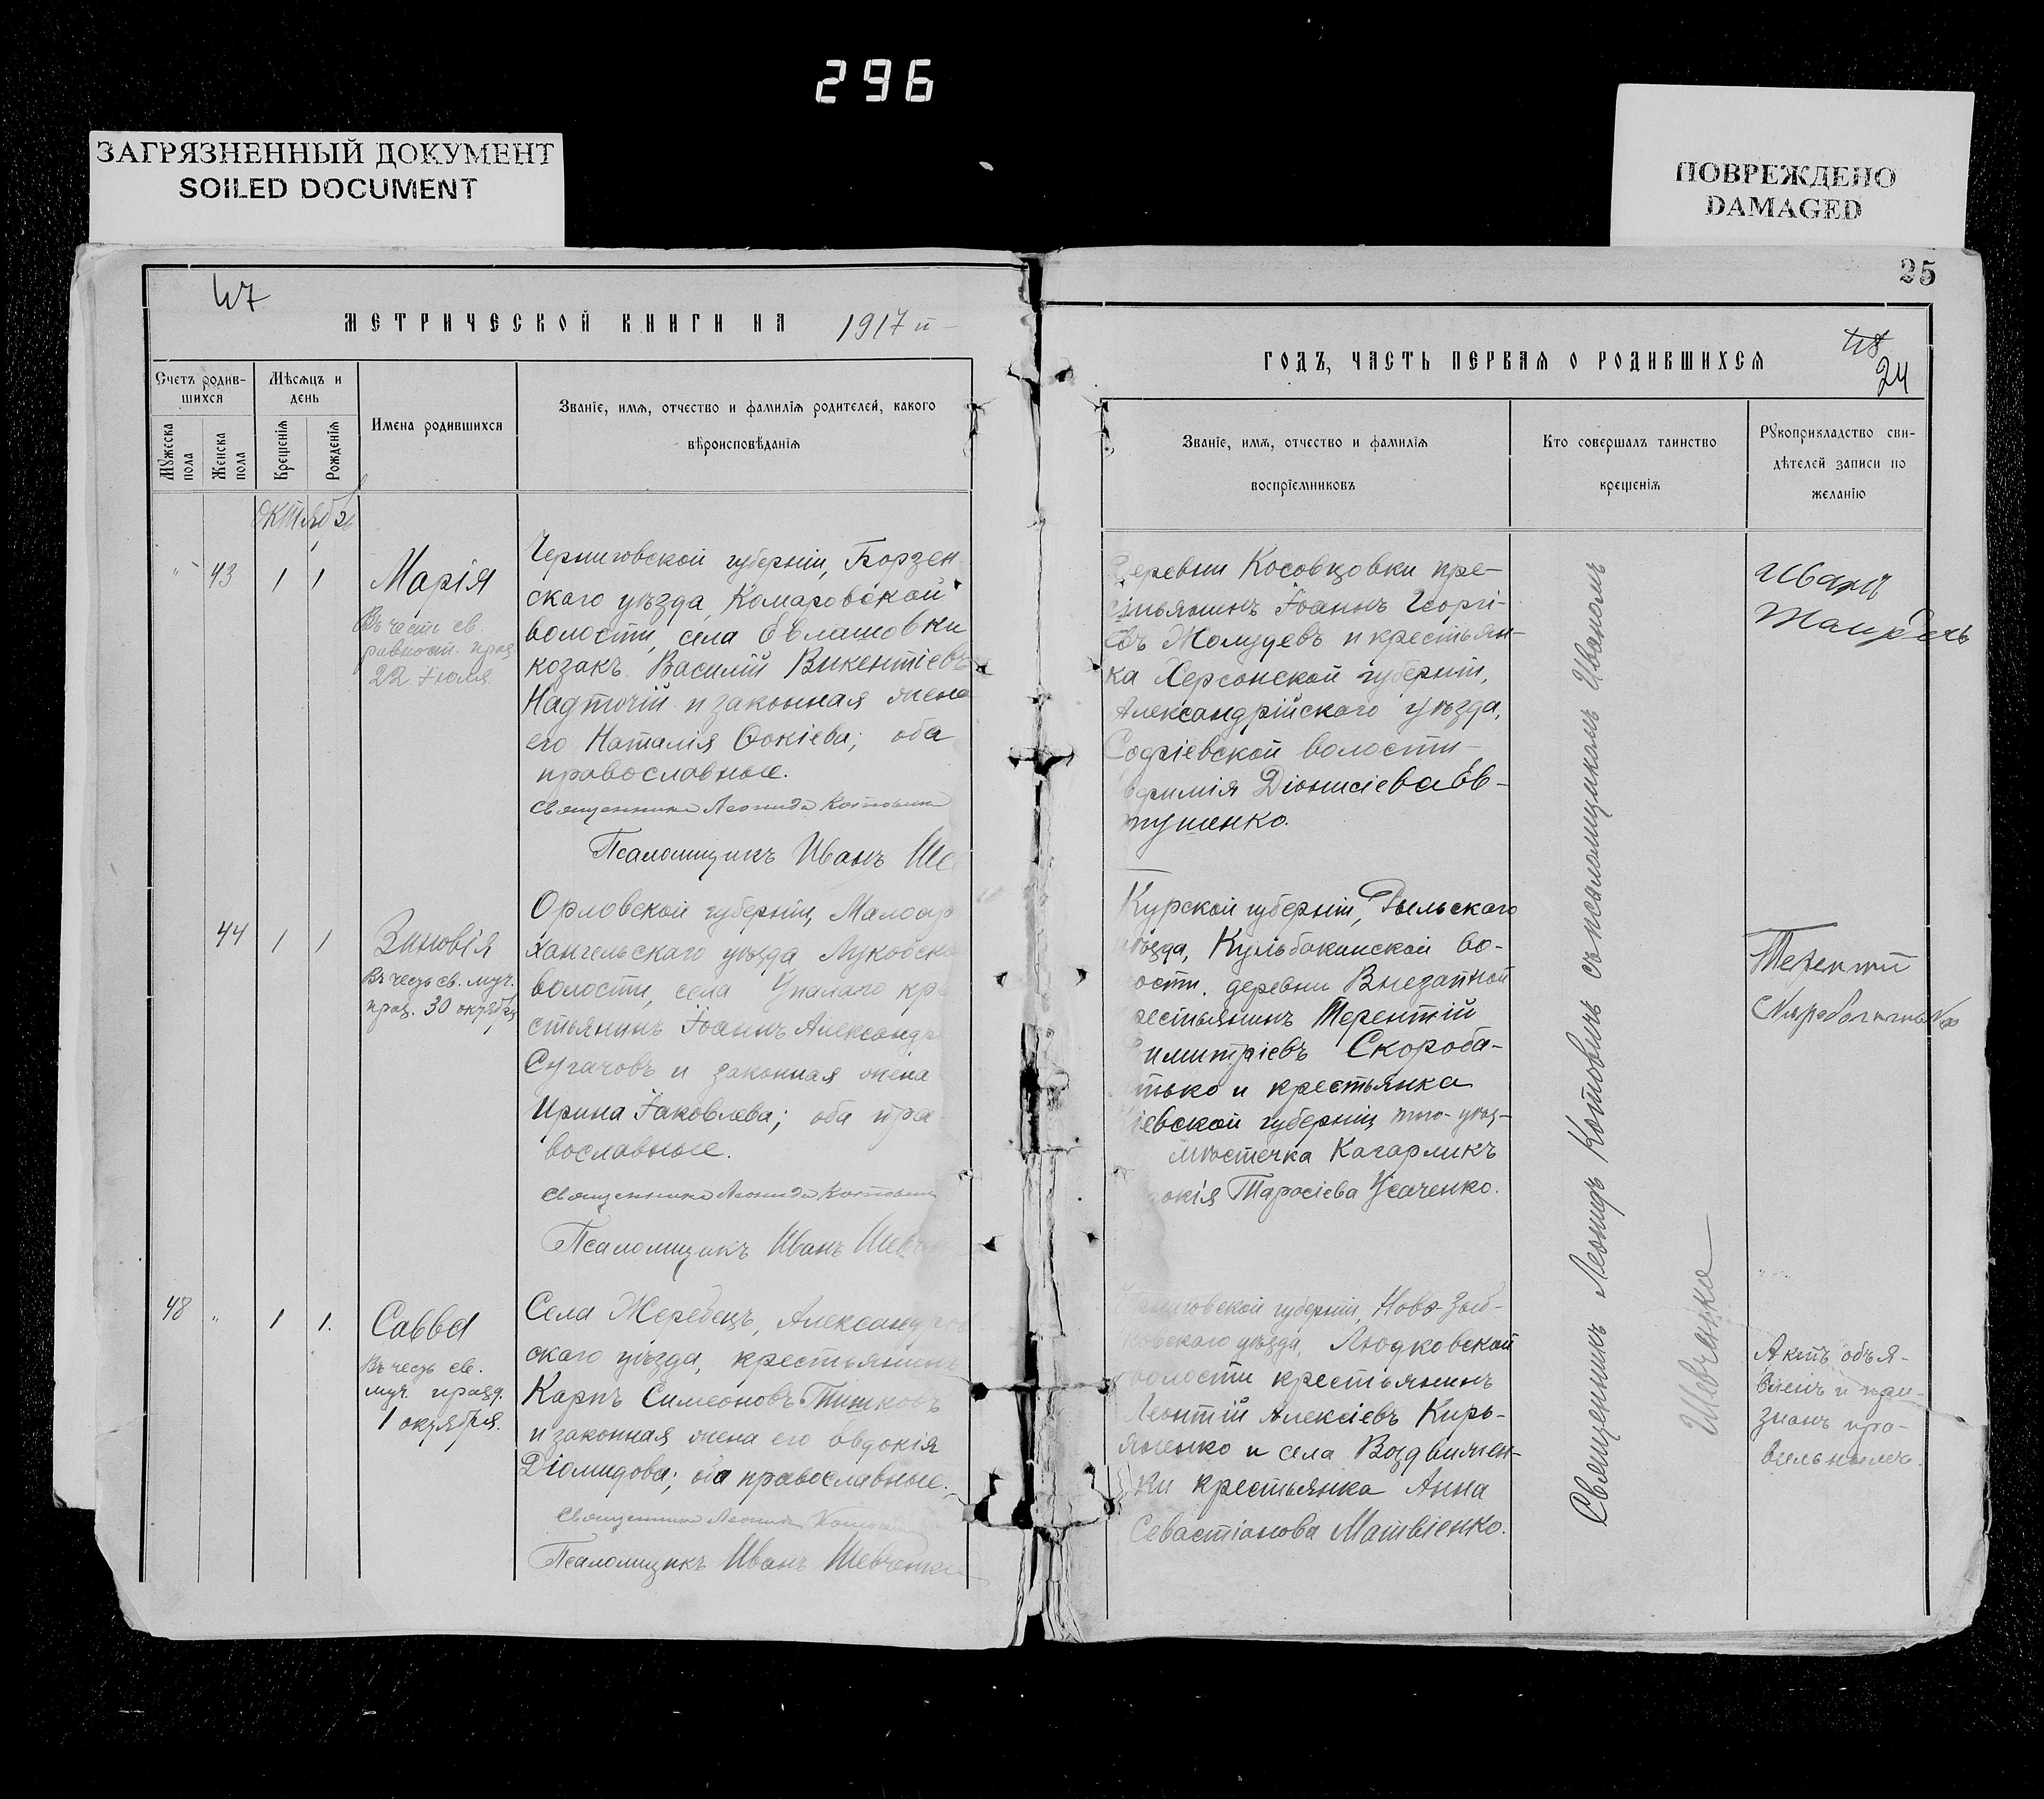 296
ЗАГРЯЗНЕННЫЙ ДОКУМЕНТ
SOILED DOCUMENT
ПОВРЕЖДЕНО
DAMAGED
47
МЕТРИЧЕСКОЙ КНИГИ НА 1917 й
Счетъ родив-
шихся
Мѣсяцъ и
день
Мужеска
пола
Женска
пола
Крещенія
Рожденія
Имена родившихся
Званіе, имя, отчество и фамилія родителей, какого
вѣроисповѣданія
Октябрь
43 1 1
Марія
Въ честь св.
равноап. праз.
22 Іюля
Черниговской губерніи, Борзен
скаго уѣзда, Комаровской
волости, села Евлашовки
козакъ Василій Викентіевъ
Надточій и законная жена
его Наталія Фокіева; оба
православные.
Священникъ Леонидъ Котович
Псаломщикъ Иванъ Ше
44 1 1
Зиновія
Въ честь св. муч.
праз. 30 октября
Орловской губерніи, Малоар
хангельскаго уѣзда Луковско
волости, села Упалаго кр
стьянинъ Іоаннъ Александр
Сугачовъ и законная жена
Ирина Іаковлева; оба пра
вославные.
Священникъ Леонидъ Котович
Псаломщикъ Иванъ Шев
48 " 1 1.
Савва
Въ честь св.
муч. празд.
1 октября.
Села Жеребецъ, Александров
скаго уѣзда, крестьянинъ
Карпъ Симеоновъ Тишковъ
и законная жена его Евдокія
Діомидова; оба православные.
Священникъ Леонидъ Котович
Псаломщикъ Иванъ Шевченко
25
48
24
ГОДЪ, ЧАСТЬ ПЕРВАЯ О РОДИВШИХСЯ
Званіе, имя, отчество и фамилія
воспріемниковъ
Кто совершалъ таинство
крещенія
Рукоприкладство сви-
дѣтелей записи по
желанію
Деревни Косовцовки кре-
стьянинъ Іоаннъ Георгі-
евъ и крестьян-
ка Херсонской губерніи,
Александрійскаго уѣзда,
Софіевской волости
Діонисіева Ев-
тушенко.
Иванъ
Курской губерніи, Рыльскаго
уѣзда, Кульбакинской во-
ости, деревни Внезапной
рестьянинъ Терентій
имитріевъ Скороба-
тько и крестьянка
іевской губерніи того-уѣз-
мѣстечка Кагарликъ
окія Тарасіева Усаченко.
Терентій
Черниговской губерніи, Ново-Зыб-
ковскаго уѣзда, Людковской
волости крестьянинъ
Леонтій Алексіевъ Кирь-
яненко и села Воздвижен-
ки крестьянка Анна
Севастіанова Матвіенко.
Священникъ Леонидъ Котовичъ съ псаломщикомъ Иваномъ
Шевченко
Актъ объя-
вленъ и при-
знанъ пра-
вильнымъ